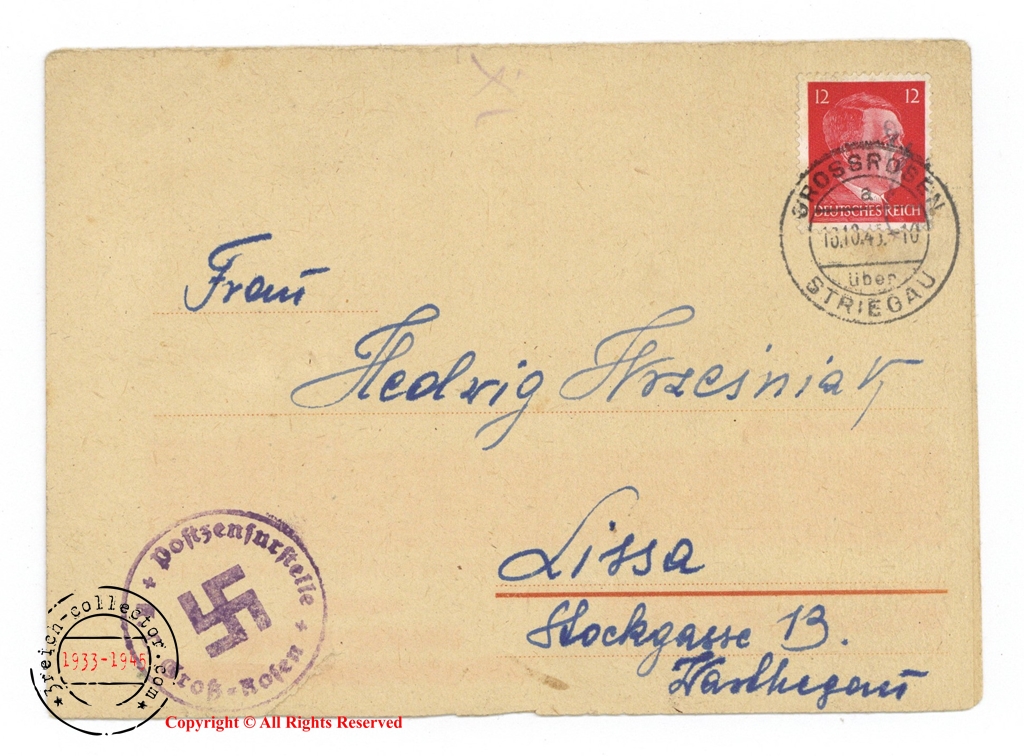 12 12
DEUTSCHES REICH
GROSSROSEN
a
18.10.43.-10
über
STRIEGAU
Frau
Hedwig Wrzesniak
Lissa
Stockgasse 13.
Warthegau
+ Postzensurstelle +
Groß-Rosen
3reich-collector.com
1933-1945
Copyright © All Rights Reserved